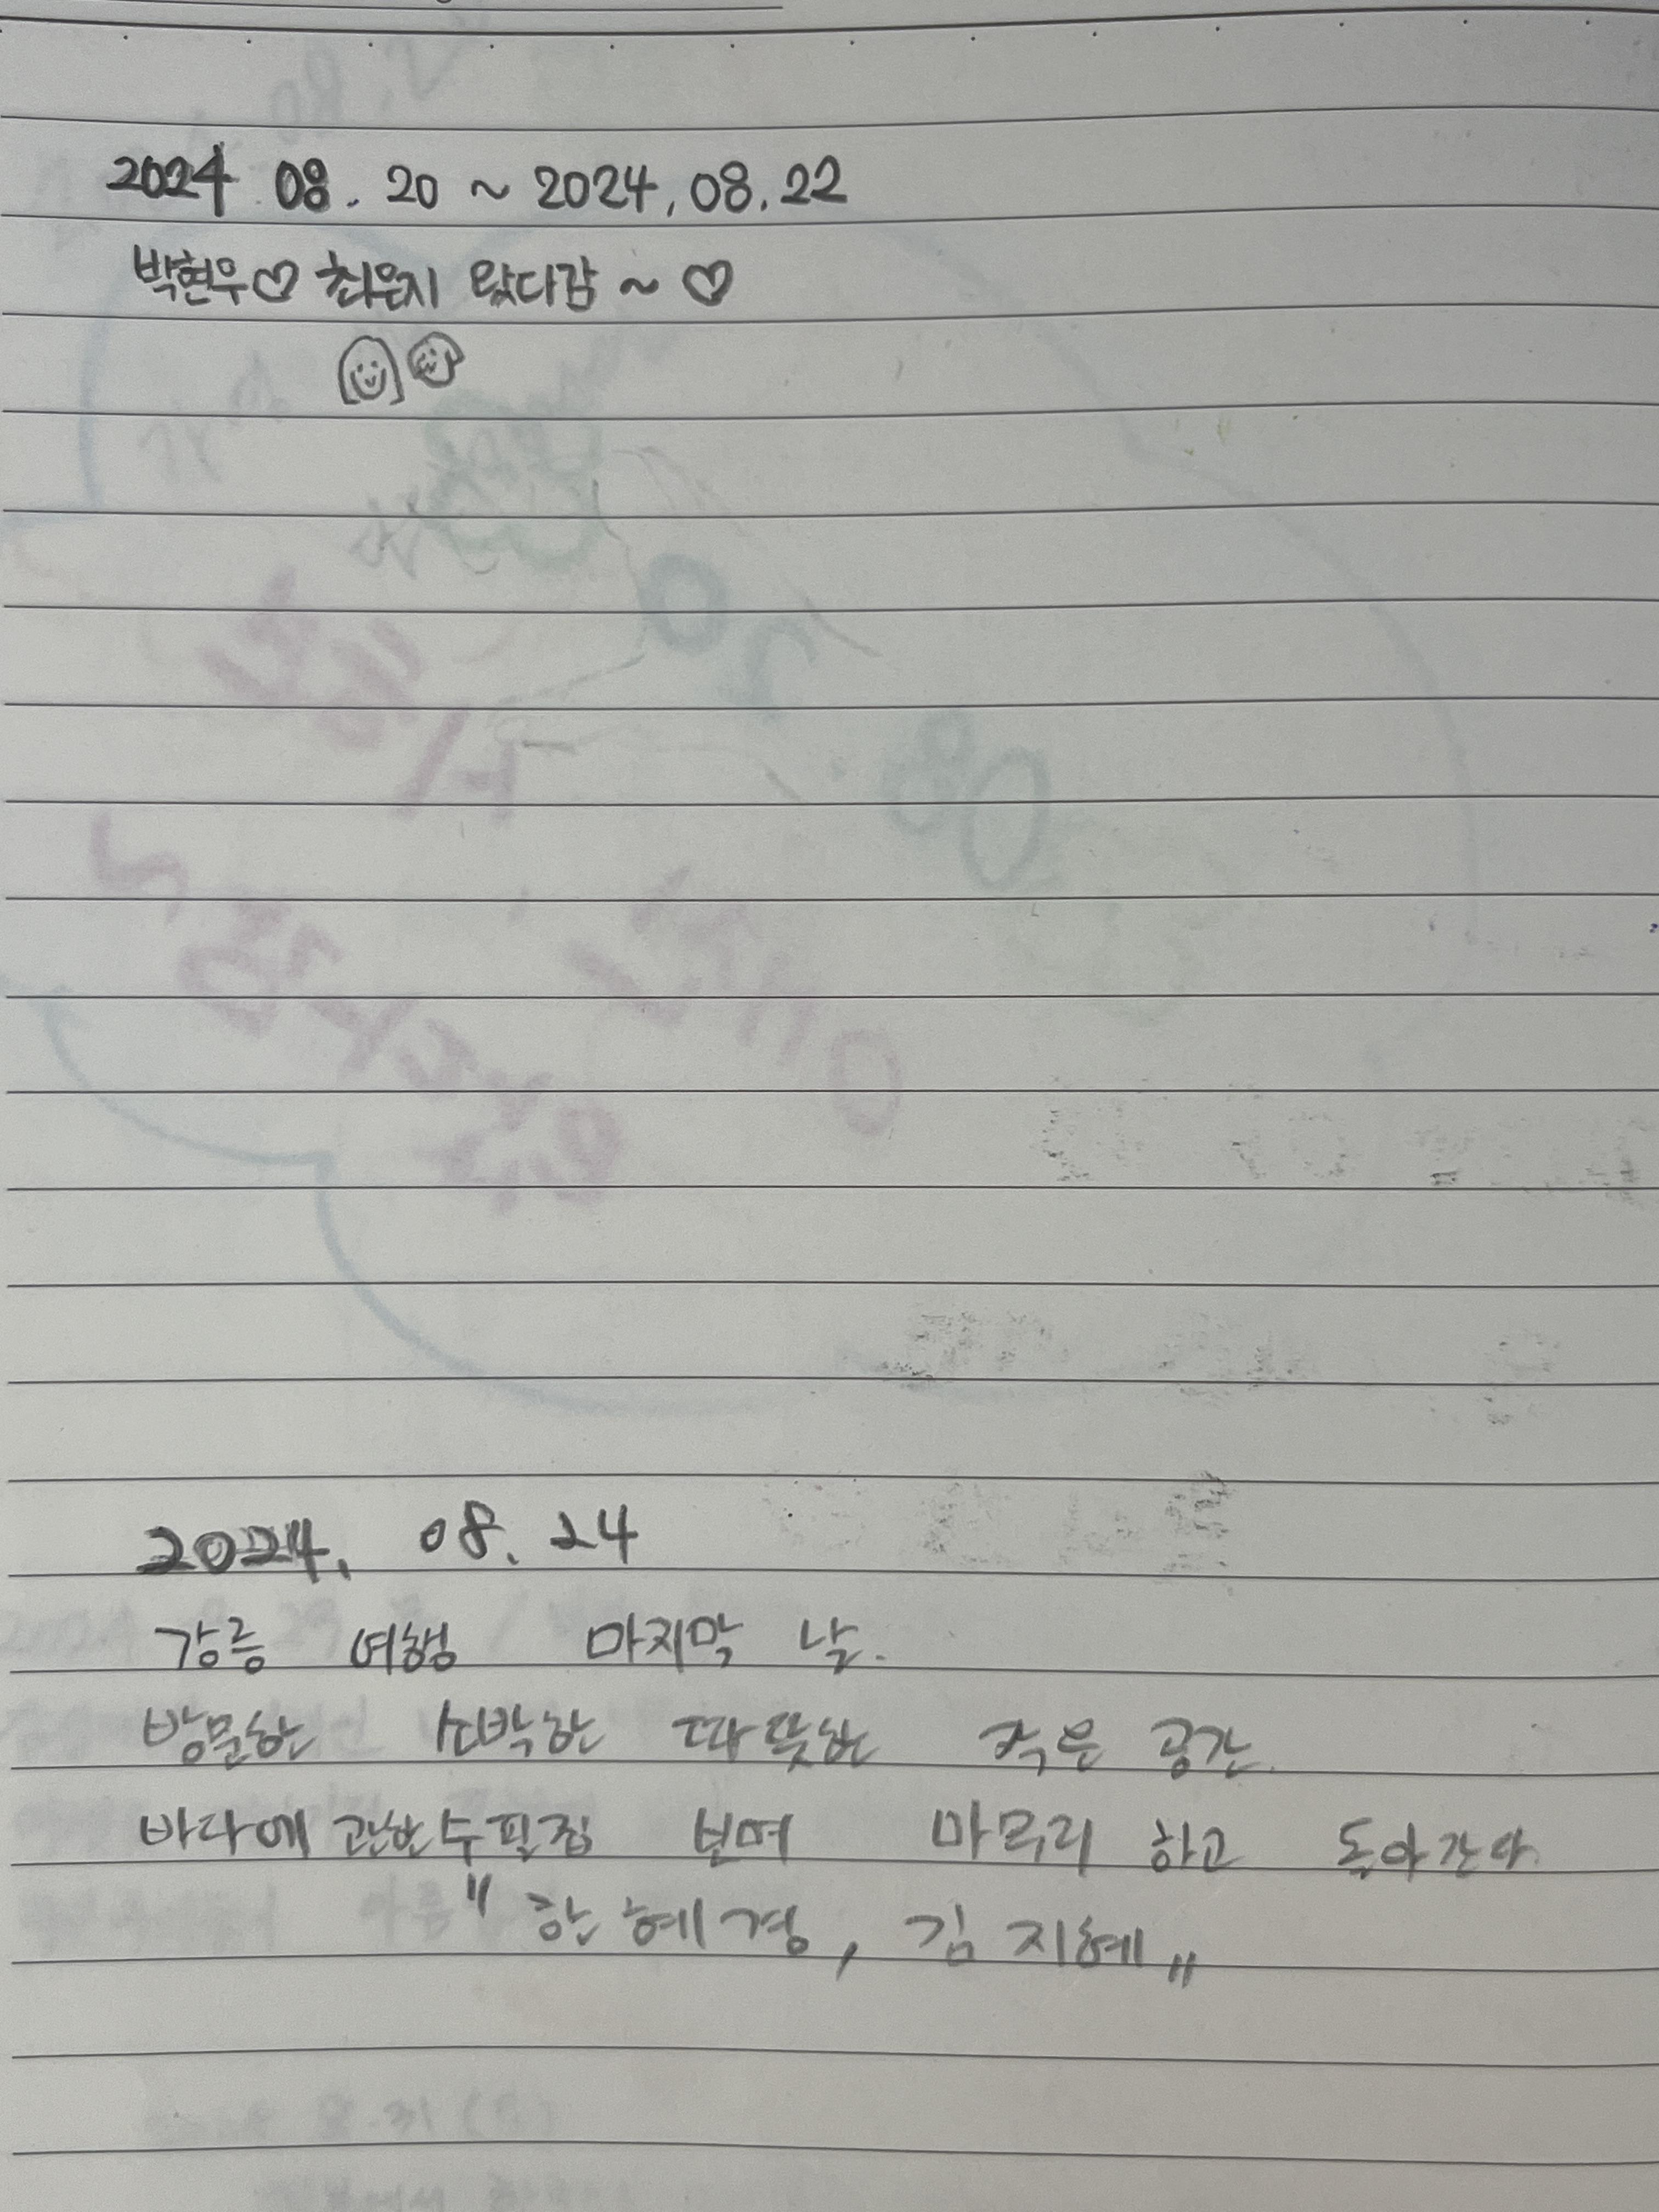 2024 08. 20 ~ 2024. 08. 22
박현우♡ 최은지 왔다감 ~ ♡
2024. 08. 24
강릉 여행 마지막 날.
방문한 소박한 따뜻한 작은 공간.
바다에 관한 수필집 보며 마무리 하고 돌아간다.
"한혜경, 김지혜"